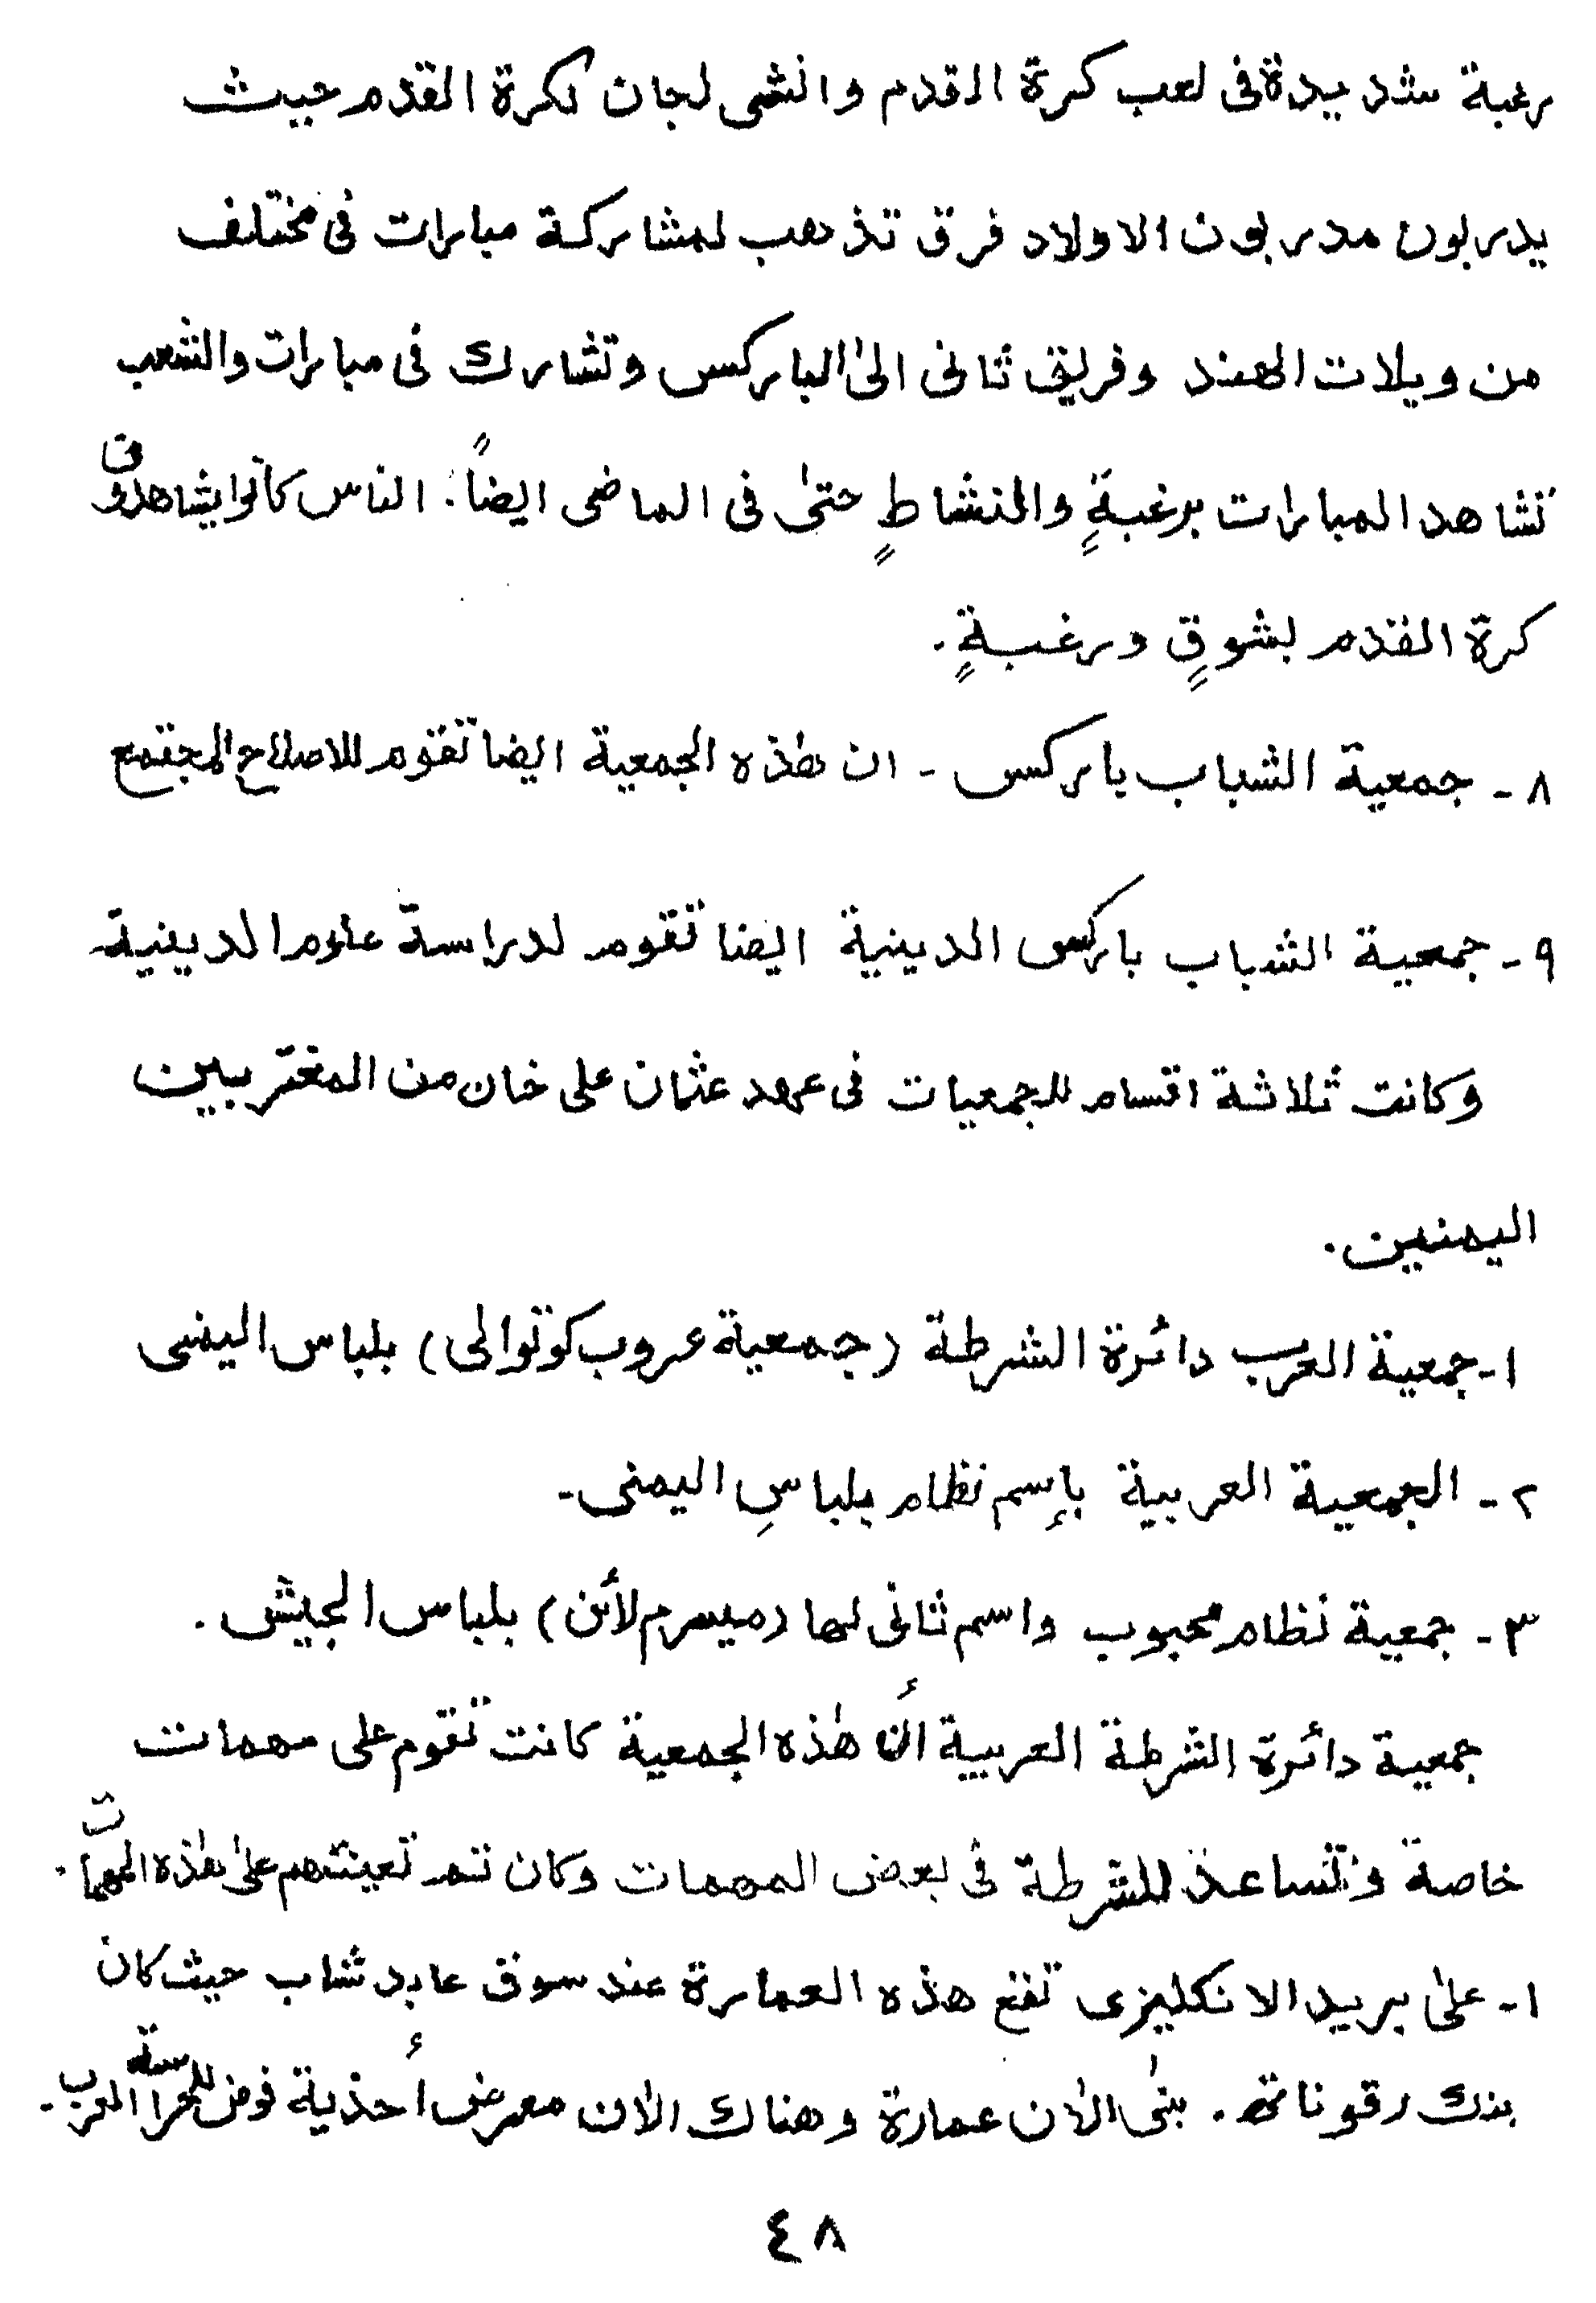 رغبة شديدة فى لعب كرة القدم وانشى لجان لكرة القدم حيث
يدربون مدربون الاولاد فرق تذهب لمشاركة مبارات فى مختلف
من ويلات الهند وفريق ثانى الىٰ الباركس وتشارك فى مبارات والشعب
تشاهد المبارات برغبةٍ والنشاطٍ حتىٰ فى الماضى ايضاً. الناس كانوا يشاهدون
كرة القدم بشوقٍ ورغبةٍ.
٨- جمعية الشباب باركس - ان هٰذه الجمعية ايضا تقوم للاصلاح المجتمع
٩- جمعية الشباب باركس الدينية ايضا تقوم لدراسة علوم الدينية
وكانت ثلاثة اقسام للجمعيات فى عهد عثمان على خان من المغتربين
اليمنين.
١- جمعية العرب دائرة الشرطة (جمعية عروب كوتوالى) بلباس اليمنى
٢- الجمعية العربية بإسم نظام بلباسِ اليمنى-
٣- جمعية نظام محبوب واسم ثانى لها (ميسرم لأئن) بلباس الجيش.
جمعية دائرة الشرطة العربية أن هٰذه الجمعية كانت تقوم على مهمات
خاصة وتساعد للشرطة فى بعض المهمات وكان تتم تعينتهم علىٰ هٰذه المهمات.
١- علىٰ بريد الانكليزى تقع هذه العمارة عند سوق عابد شاب حيث كان
بنك رقوناتھ. بنىٰ الأن عمارة وهناك الأن معرض أحذية فوض للحراسة العرب.
٤٨